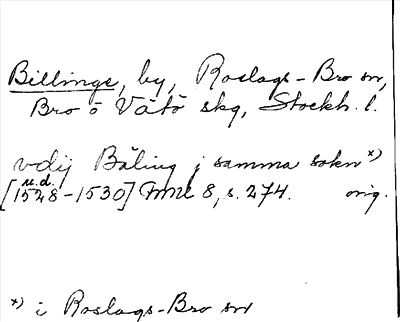 Billinge, by, Roslags-Bro sn,
Bro o Vätö skg, Stockh. l.
vdij Bäling j samma sokn x)
u.d.
[1528-1530] HML 8, s. 274. orig.
x) i Roslags-Bro sn